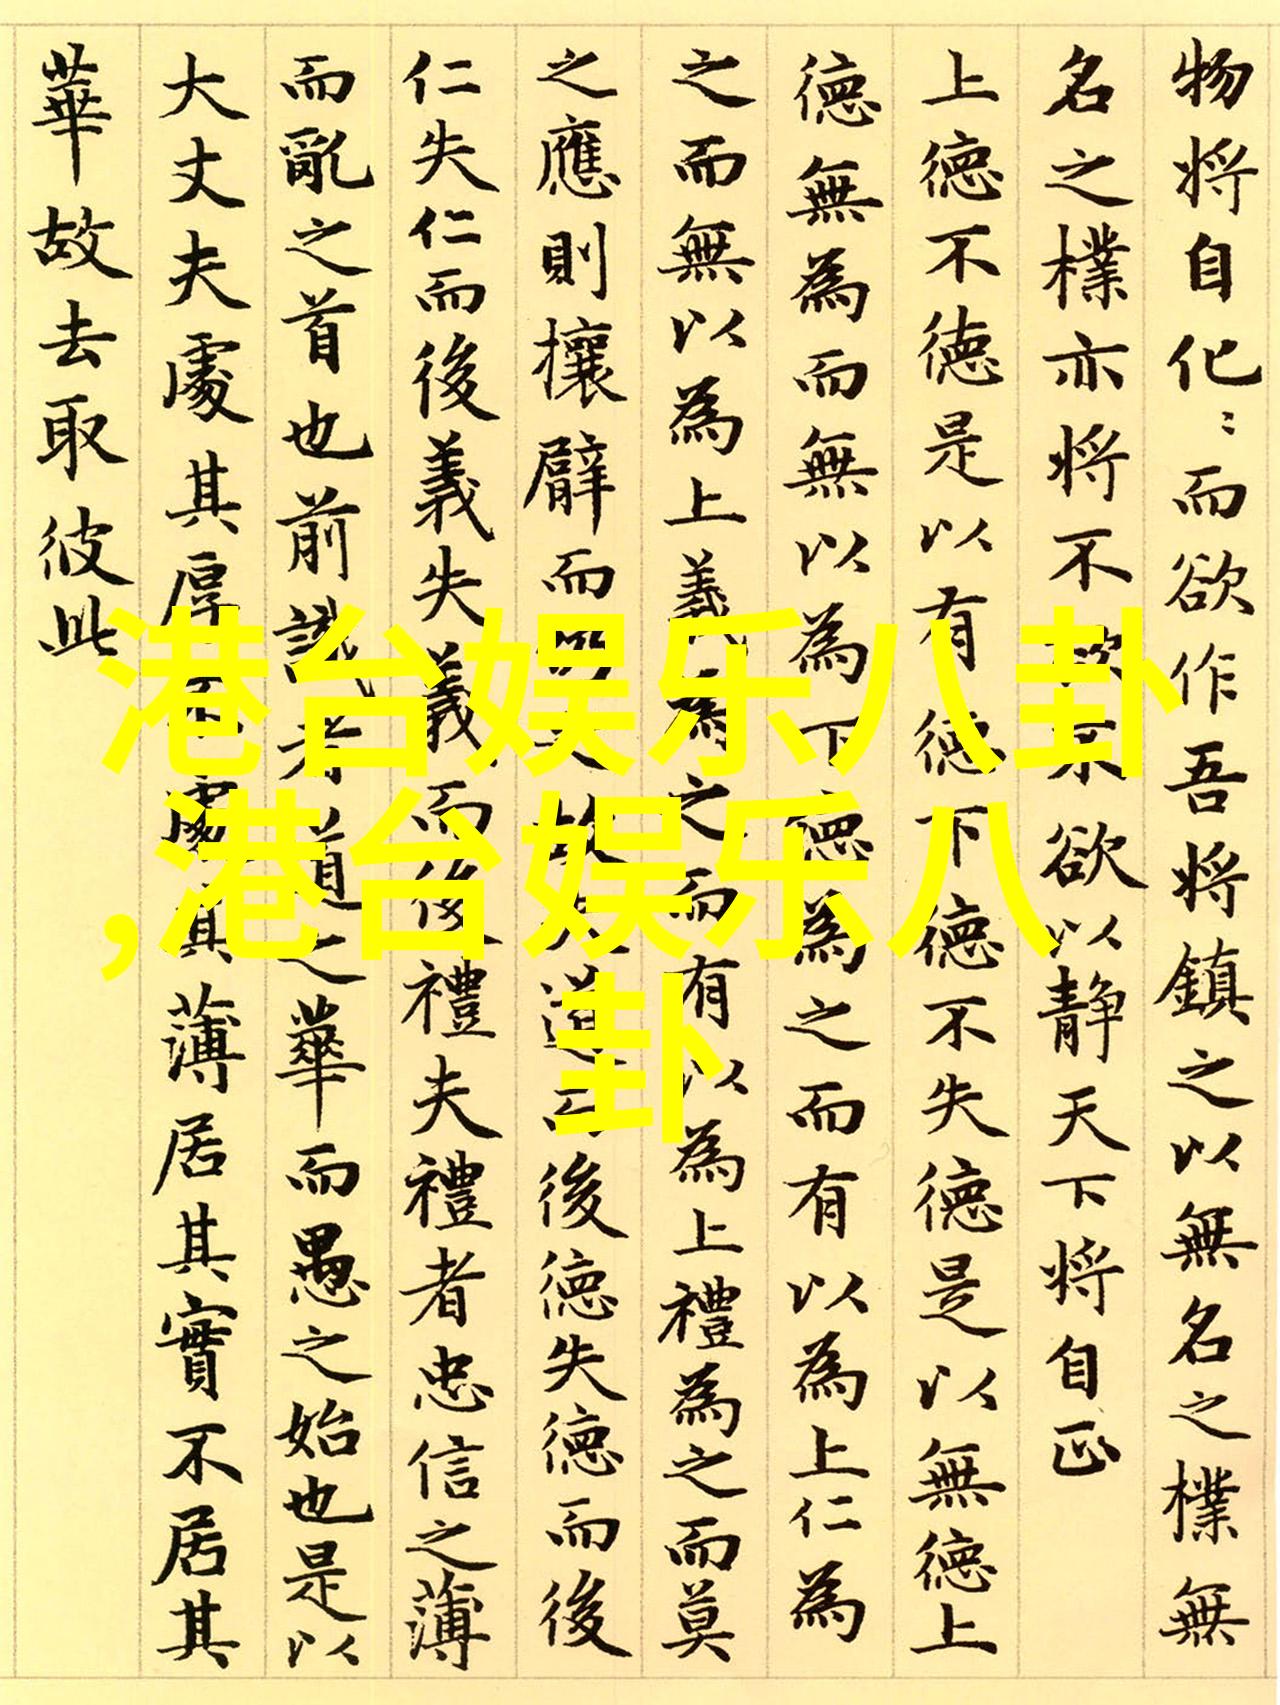 物将自化〻而欲作吾将鎮之以無名之樸無
名之樸亦将不欲不欲以静天下将自正
上德不德是以有德下德不失德是以無德上
德無為而無以為下德為之而有以為上仁為
之而無以為上義為之而有以為上禮為之而莫
之應則攘臂而之故失道而後德失德而後
仁失仁而後義失義而後禮夫禮者忠信之薄
而亂之首也前識者道之華而愚之始也是以
大丈夫處其厚不處其薄居其實不居其
華故去取彼此
港台娱乐八卦
,港台娱乐八
卦